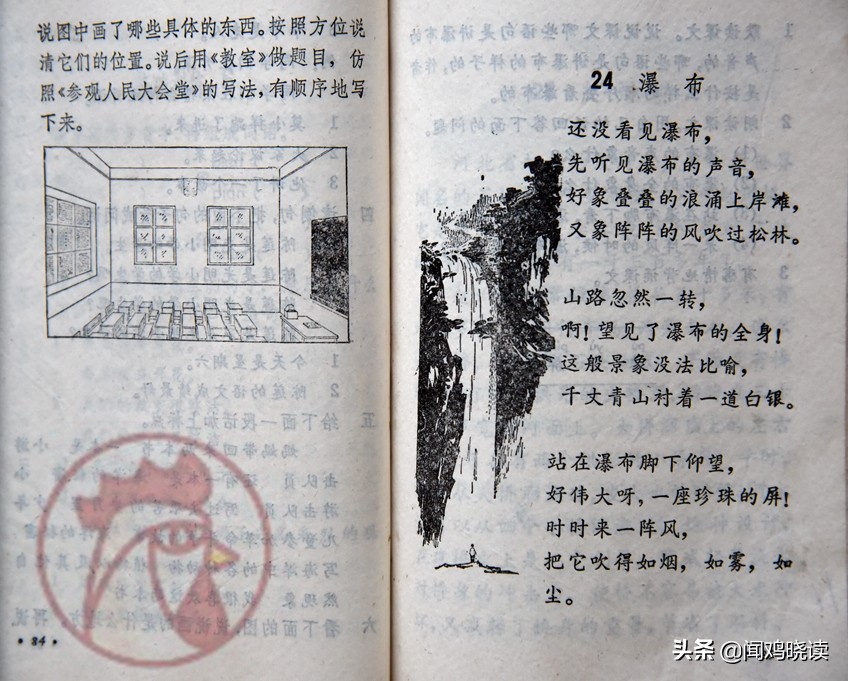 说图中画了哪些具体的东西。按照方位说
清它们的位置。说后用《教室》做题目，仿
照《参观人民大会堂》的写法，有顺序地写
下来。
·84·
24 瀑布
还没看见瀑布，
先听见瀑布的声音，
好象叠叠的浪涌上岸滩，
又象阵阵的风吹过松林。
山路忽然一转，
啊！望见了瀑布的全身！
这般景象没法比喻，
千丈青山衬着一道白银。
站在瀑布脚下仰望，
好伟大呀，一座珍珠的屏！
时时来一阵风，
把它吹得如烟，如雾，如
尘。
头条 @闻鸡晓读